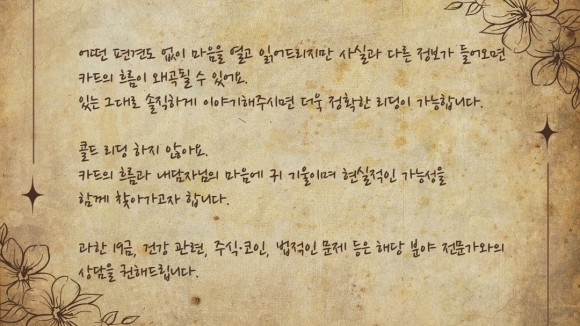 어떤 편견도 없이 마음을 열고 읽어드리지만 사실과 다른 정보가 들어오면
카드의 흐름이 왜곡될 수 있어요.
있는 그대로 솔직하게 이야기해주시면 더욱 정확한 리딩이 가능합니다.
콜드 리딩 하지 않아요.
카드의 흐름과 내담자님의 마음에 귀 기울이며 현실적인 가능성을
함께 찾아가고자 합니다.
과한 19금, 건강 관련, 주식·코인, 법적인 문제 등은 해당 분야 전문가와의
상담을 권해드립니다.